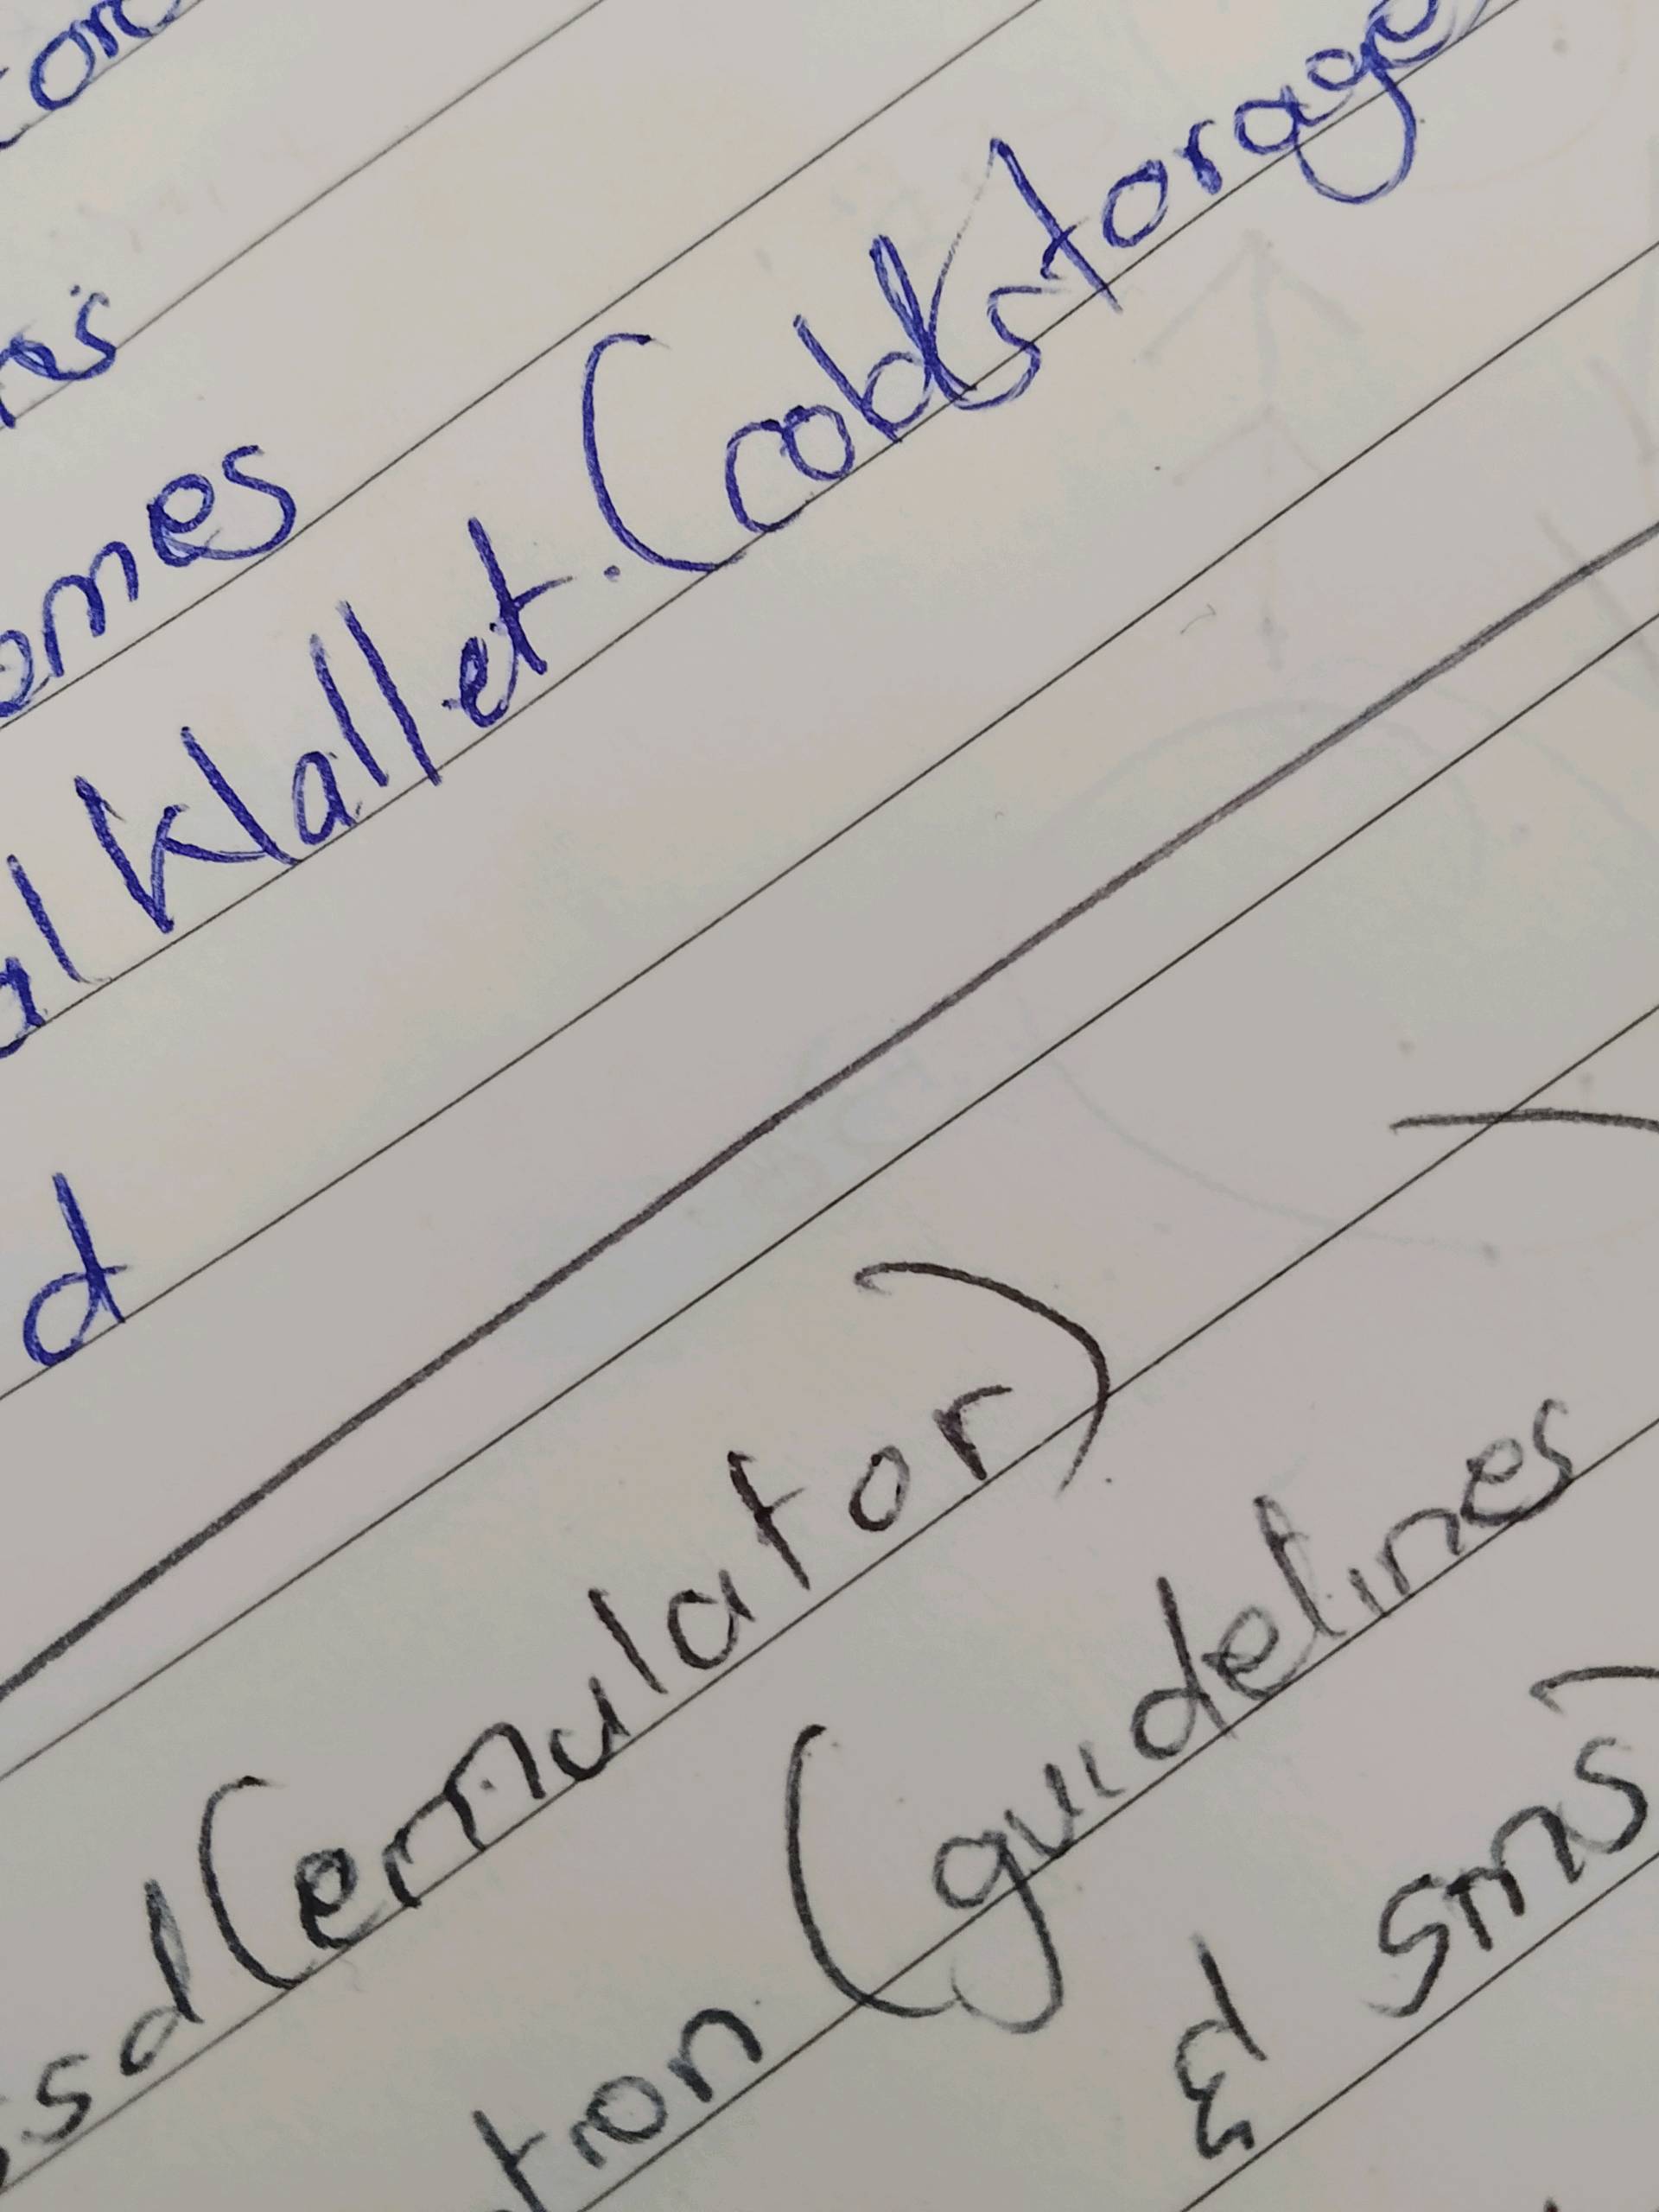 omes
al Wallet. (cold storage
d
ssd (emulator)
tion (guidelines
& sms)